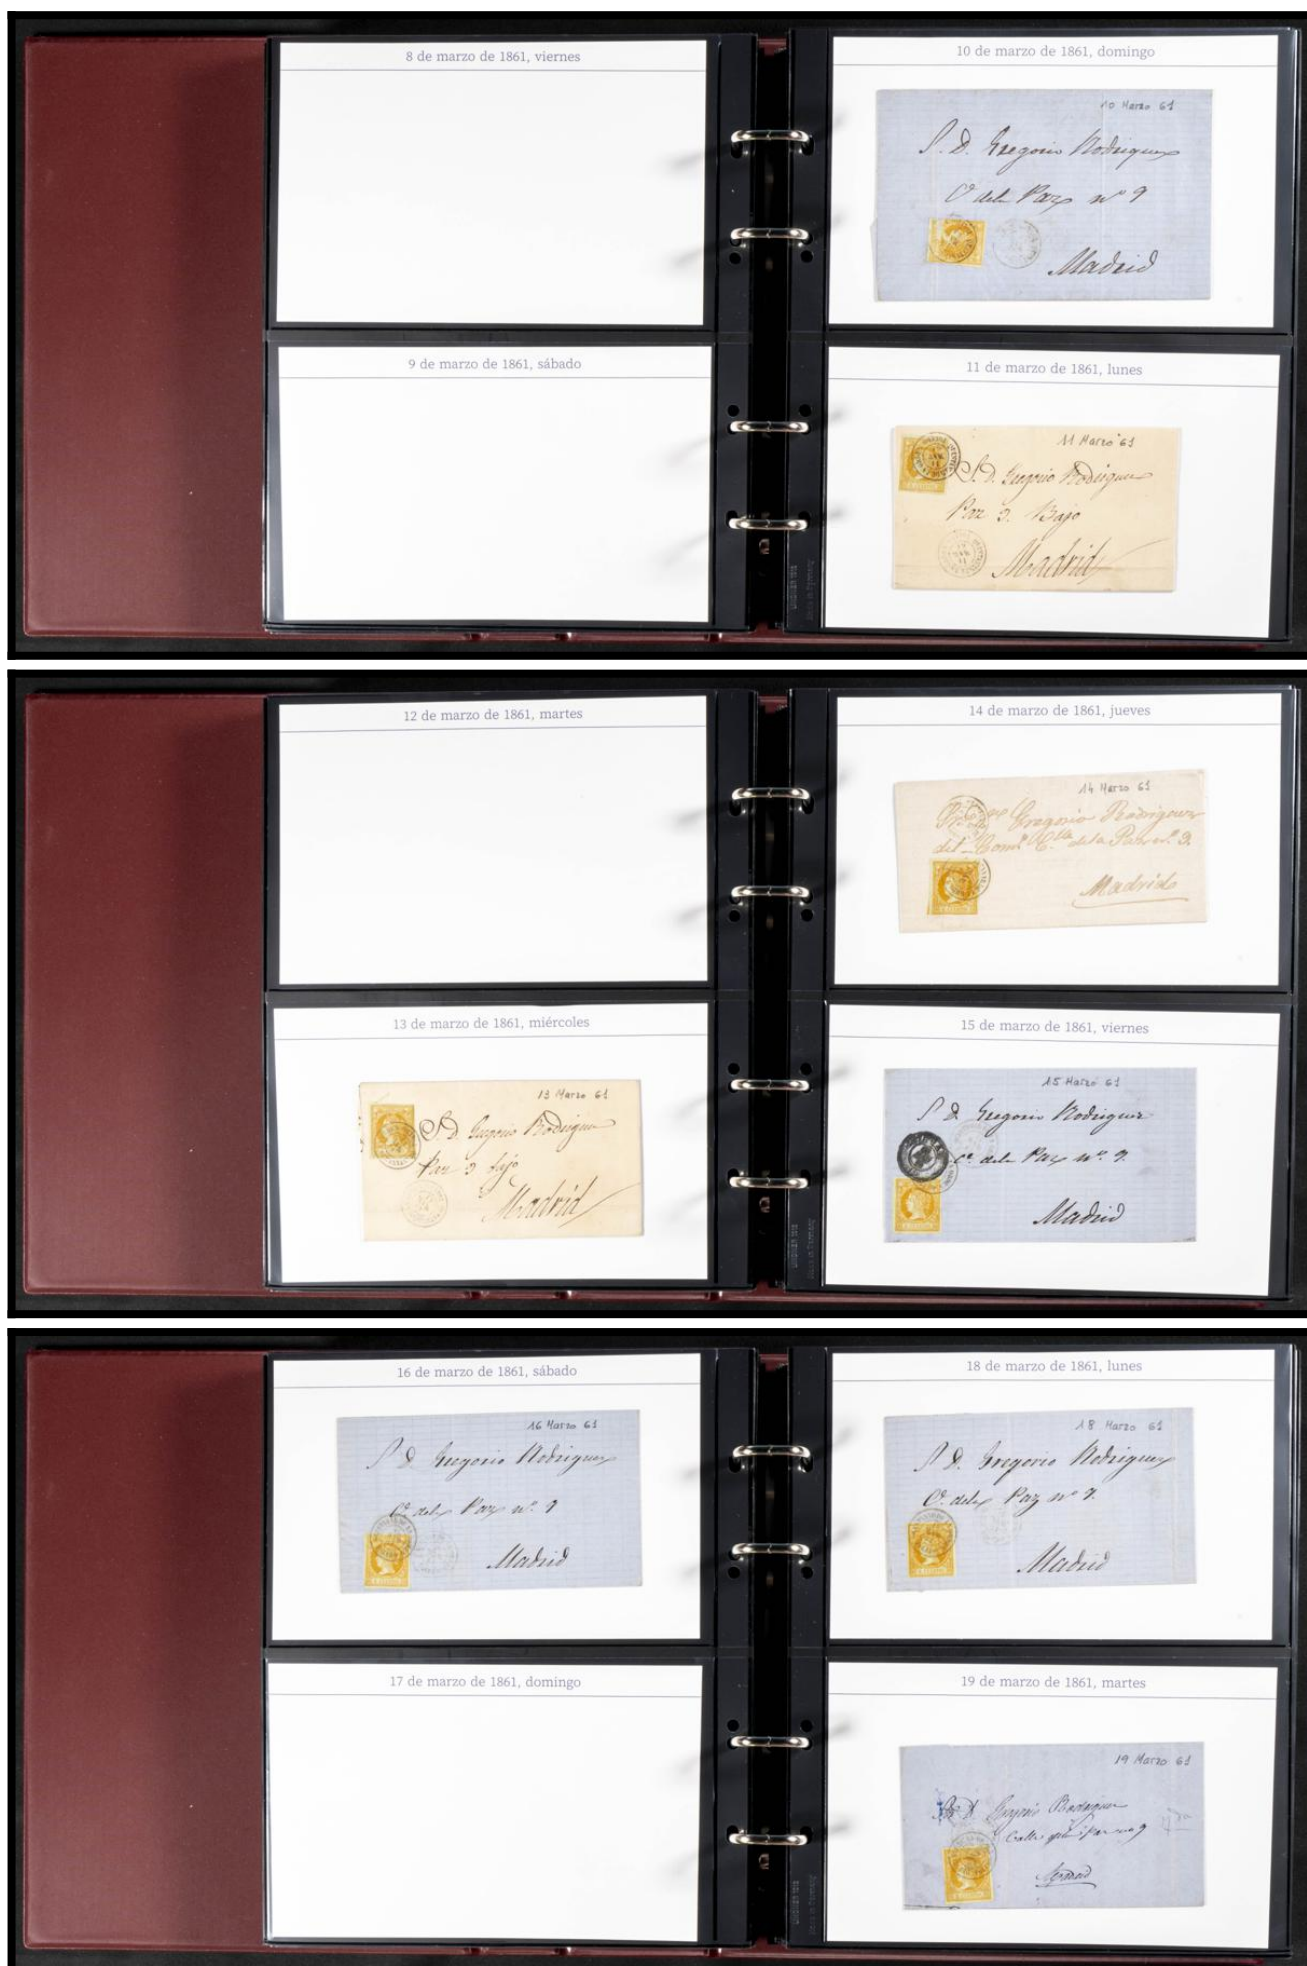 8 de marzo de 1861, viernes
9 de marzo de 1861, sábado
10 de marzo de 1861, domingo
10 Marzo 61
S. D. Gregorio Rodriguez
C. de la Paz nº 9
Madrid
11 de marzo de 1861, lunes
11 Marzo 61
S. D. Gregorio Rodriguez
Paz 9. Bajo
Madrid
12 de marzo de 1861, martes
13 de marzo de 1861, miércoles
13 Marzo 61
S. D. Gregorio Rodriguez
Paz 9 bajo
Madrid
14 de marzo de 1861, jueves
14 Marzo 61
Gregorio Rodriguez
del Comº Clle de la Paz nº 9.
Madrid
15 de marzo de 1861, viernes
15 Marzo 61
S. D. Gregorio Rodriguez
C. de la Paz nº 9.
Madrid
16 de marzo de 1861, sábado
16 Marzo 61
S. D. Gregorio Rodriguez
C. de la Paz nº 9
Madrid
17 de marzo de 1861, domingo
18 de marzo de 1861, lunes
18 Marzo 61
S. D. Gregorio Rodriguez
C. de la Paz nº 9.
Madrid
19 de marzo de 1861, martes
19 Marzo 61
D. Gregorio Rodriguez
Calle Paz 9
Madrid